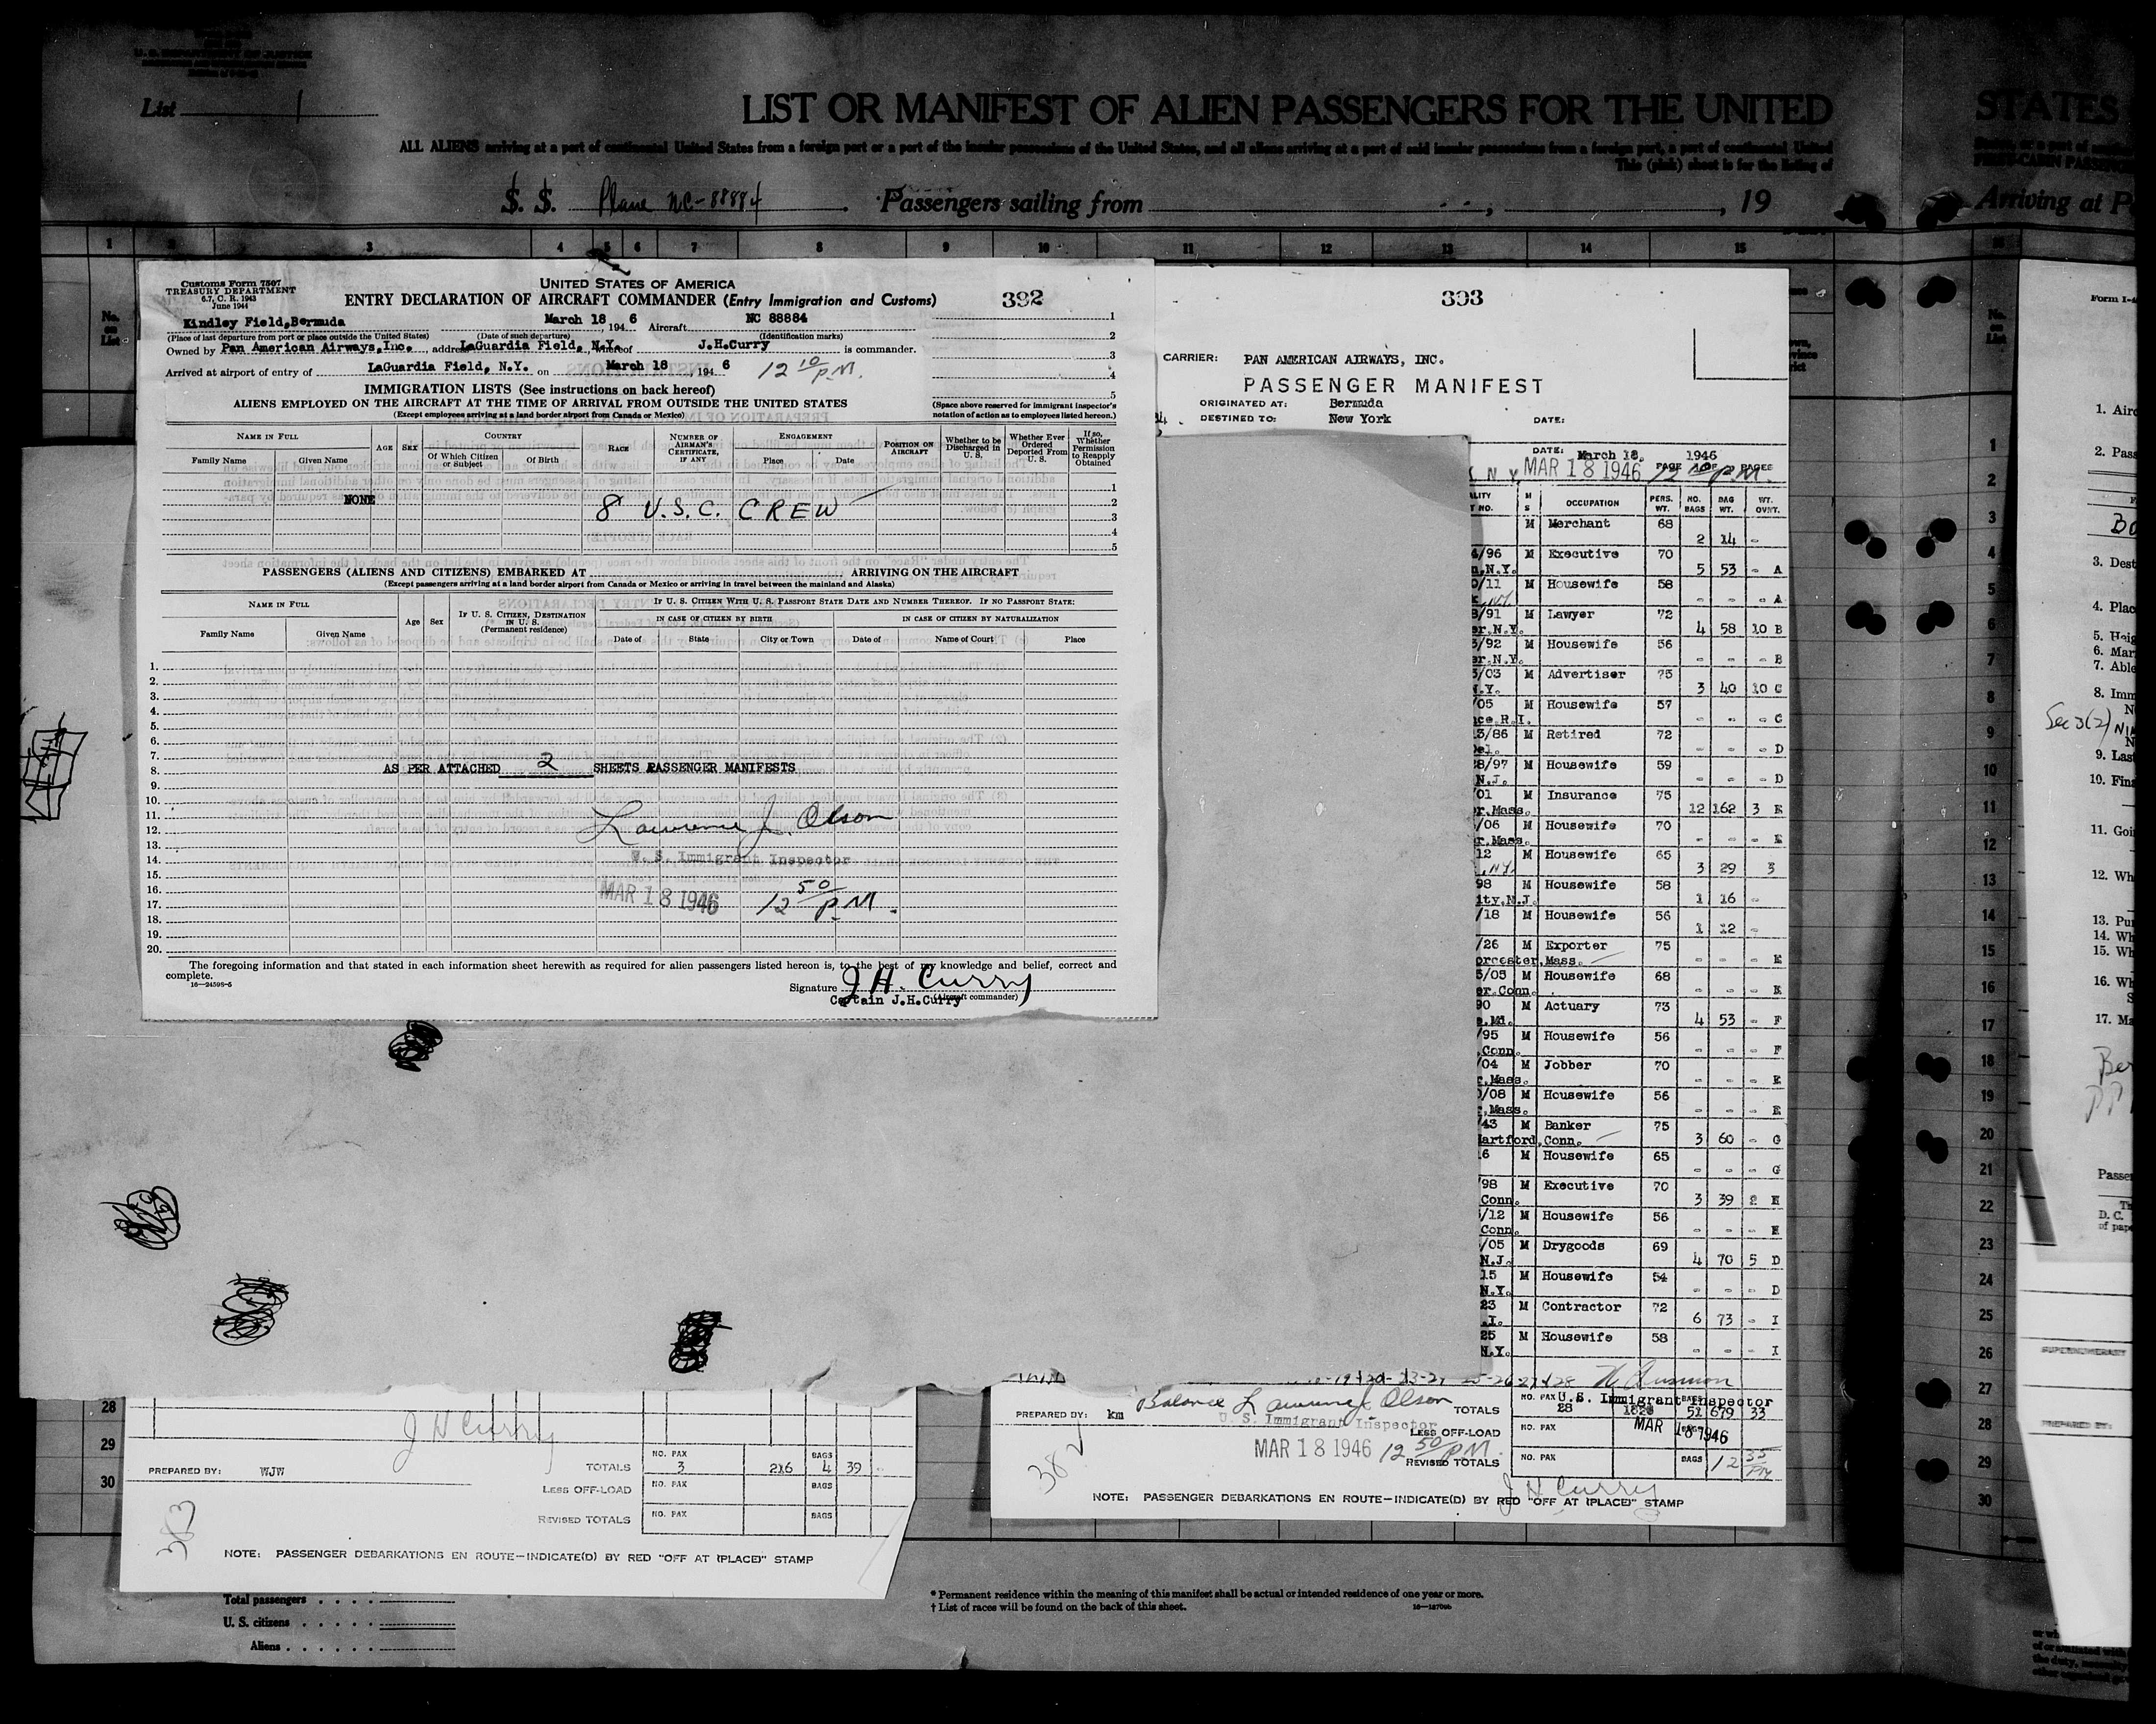 U. S. DEPARTMENT OF JUSTICE
List 1
LIST OR MANIFEST OF ALIEN PASSENGERS FOR THE UNITED
STATES
ALL ALIENS arriving at a port of continental United States from a foreign port or a port of the insular possessions of the United States, and all aliens arriving at a port of said insular possessions from a foreign port, a port of continental United
This (pink) sheet is for the listing of
S. S. Plane NC-88884 Passengers sailing from , , 19
Arriving at P
1 2 3 4 5 6 7 8 9 10 11 12 13 14 15
No. on List
Customs Form 7507
TREASURY DEPARTMENT
6.7, C. R. 1943
June 1944
UNITED STATES OF AMERICA
ENTRY DECLARATION OF AIRCRAFT COMMANDER (Entry Immigration and Customs)
382
Kindley Field,Bermuda March 18, 1946 Aircraft NC 88884
(Place of last departure from port or place outside the United States) (Date of such departure) (Identification marks)
Owned by Pan American Airways,Inc., address LaGuardia Field, N.Y., whereof J.H.Curry is commander.
Arrived at airport of entry of LaGuardia Field, N.Y. on March 18, 1946 12 10/P.M.
1
2
3
4
5
(Space above reserved for immigrant inspector's notation of action as to employees listed hereon.)
IMMIGRATION LISTS (See instructions on back hereof)
ALIENS EMPLOYED ON THE AIRCRAFT AT THE TIME OF ARRIVAL FROM OUTSIDE THE UNITED STATES
(Except employees arriving at a land border airport from Canada or Mexico)
NAME IN FULL AGE SEX COUNTRY RACE NUMBER OF AIRMAN'S CERTIFICATE, IF ANY ENGAGEMENT POSITION ON AIRCRAFT Whether to be Discharged in U. S. Whether Ever Ordered Deported From U. S. If so, Whether Permission to Reapply Obtained
Family Name Given Name Of Which Citizen or Subject Of Birth Place Date
NONE
8 U.S.C. CREW
1
2
3
4
5
PASSENGERS (ALIENS AND CITIZENS) EMBARKED AT ARRIVING ON THE AIRCRAFT
(Except passengers arriving at a land border airport from Canada or Mexico or arriving in travel between the mainland and Alaska)
NAME IN FULL Age Sex IF U. S. CITIZEN, DESTINATION IN U. S. (Permanent residence) IF U. S. CITIZEN WITH U. S. PASSPORT STATE DATE AND NUMBER THEREOF. IF NO PASSPORT STATE:
IN CASE OF CITIZEN BY BIRTH IN CASE OF CITIZEN BY NATURALIZATION
Family Name Given Name Date of State City or Town Date of Name of Court Place
1.
2.
3.
4.
5.
6.
7.
8. AS PER ATTACHED 2 SHEETS PASSENGER MANIFESTS
9.
10.
11.
12. Lawrence J. Olson
13.
14. U. S. Immigrant Inspector
15.
16.
17. MAR 18 1946 12 50/P.M.
18.
19.
20.
The foregoing information and that stated in each information sheet herewith as required for alien passengers listed hereon is, to the best of my knowledge and belief, correct and complete.
16—24598-5
Signature J. H. Curry
(Aircraft commander)
Captain J.H.Curry
383
CARRIER: PAN AMERICAN AIRWAYS, INC.
PASSENGER MANIFEST
ORIGINATED AT: Bermuda
DESTINED TO: New York DATE:
DATE: March 18, 1946
N.Y. MAR 18 1946 PAGE 1 OF PAGES 12 10 P.M.
M S OCCUPATION PERS. WT. NO. BAGS BAG WT. WT. OVNT.
M Merchant 68
2 14 -
4/96 M Executive 70
N.Y. 5 53 - A
0/11 M Housewife 58
- - - A
8/91 M Lawyer 72
er.N.Y. 4 58 10 B
3/92 M Housewife 56
er.N.Y. - - - B
3/03 M Advertiser 75
N.Y. 3 40 10 C
/05 M Housewife 57
ce.R.I. - - - C
13/86 M Retired 72
Del. - - - D
28/97 M Housewife 59
N.J. - - - D
/01 M Insurance 75
r.Mass. 12 162 3 E
/06 M Housewife 70
r.Mass. - - - E
12 M Housewife 65
N.Y. 3 29 3
98 M Housewife 58
ity.N.J. 1 16 -
/18 M Housewife 56
1 12 -
/26 M Exporter 75
orcester,Mass. - - - E
5/05 M Housewife 68
er.Conn. - - - E
90 M Actuary 73
Mi. 4 53 - F
/95 M Housewife 56
.Conn. - - - F
/04 M Jobber 70
r.Mass. - - - E
0/08 M Housewife 56
.Mass. - - - E
/43 M Banker 75
artford,Conn. 3 60 - G
16 M Housewife 65
- - - G
/98 M Executive 70
Conn. 3 39 2 H
/12 M Housewife 56
Conn. - - - H
/05 M Drygoods 69
N.J. 4 70 5 D
15 M Housewife 54
N.Y. - - - D
23 M Contractor 72
.I. 6 73 - I
25 M Housewife 58
N.Y. - - - I
PREPARED BY: km Balance Lawrence J Olson TOTALS NO. PAX 28 1828 BAGS 51 679 33
U. S. Immigrant Inspector
U. S. Immigrant Inspector
LESS OFF-LOAD NO. PAX MAR 18 1946
MAR 18 1946 12 50/P.M. REVISED TOTALS NO. PAX BAGS 12 35/PM
382
J H Curry
NOTE: PASSENGER DEBARKATIONS EN ROUTE—INDICATE(D) BY RED "OFF AT (PLACE)" STAMP
28
29
30
J H Curry
PREPARED BY: WJW TOTALS NO. PAX 3 216 BAGS 4 39
LESS OFF-LOAD NO. PAX BAGS
REVISED TOTALS NO. PAX BAGS
383
NOTE: PASSENGER DEBARKATIONS EN ROUTE—INDICATE(D) BY RED "OFF AT (PLACE)" STAMP
Total passengers
U. S. citizens
Aliens
* Permanent residence within the meaning of this manifest shall be actual or intended residence of one year or more.
† List of races will be found on the back of this sheet.
No. on List
1
2
3
4
5
6
7
8
9
10
11
12
13
14
15
16
17
18
19
20
21
22
23
24
25
26
27
28
29
30
Form I-4
1. Airc
2. Pass
3. Dest
4. Plac
5. Heig
6. Mar
7. Able
8. Imm
Sec 3(2)
9. Last
10. Fina
11. Goi
12. Wh
13. Pur
14. Wh
15. Wh
16. Wh
17. Ma
Ber
PP
Passe
D. C.
of pape
SUPERNUMERARY
PREPARED BY: